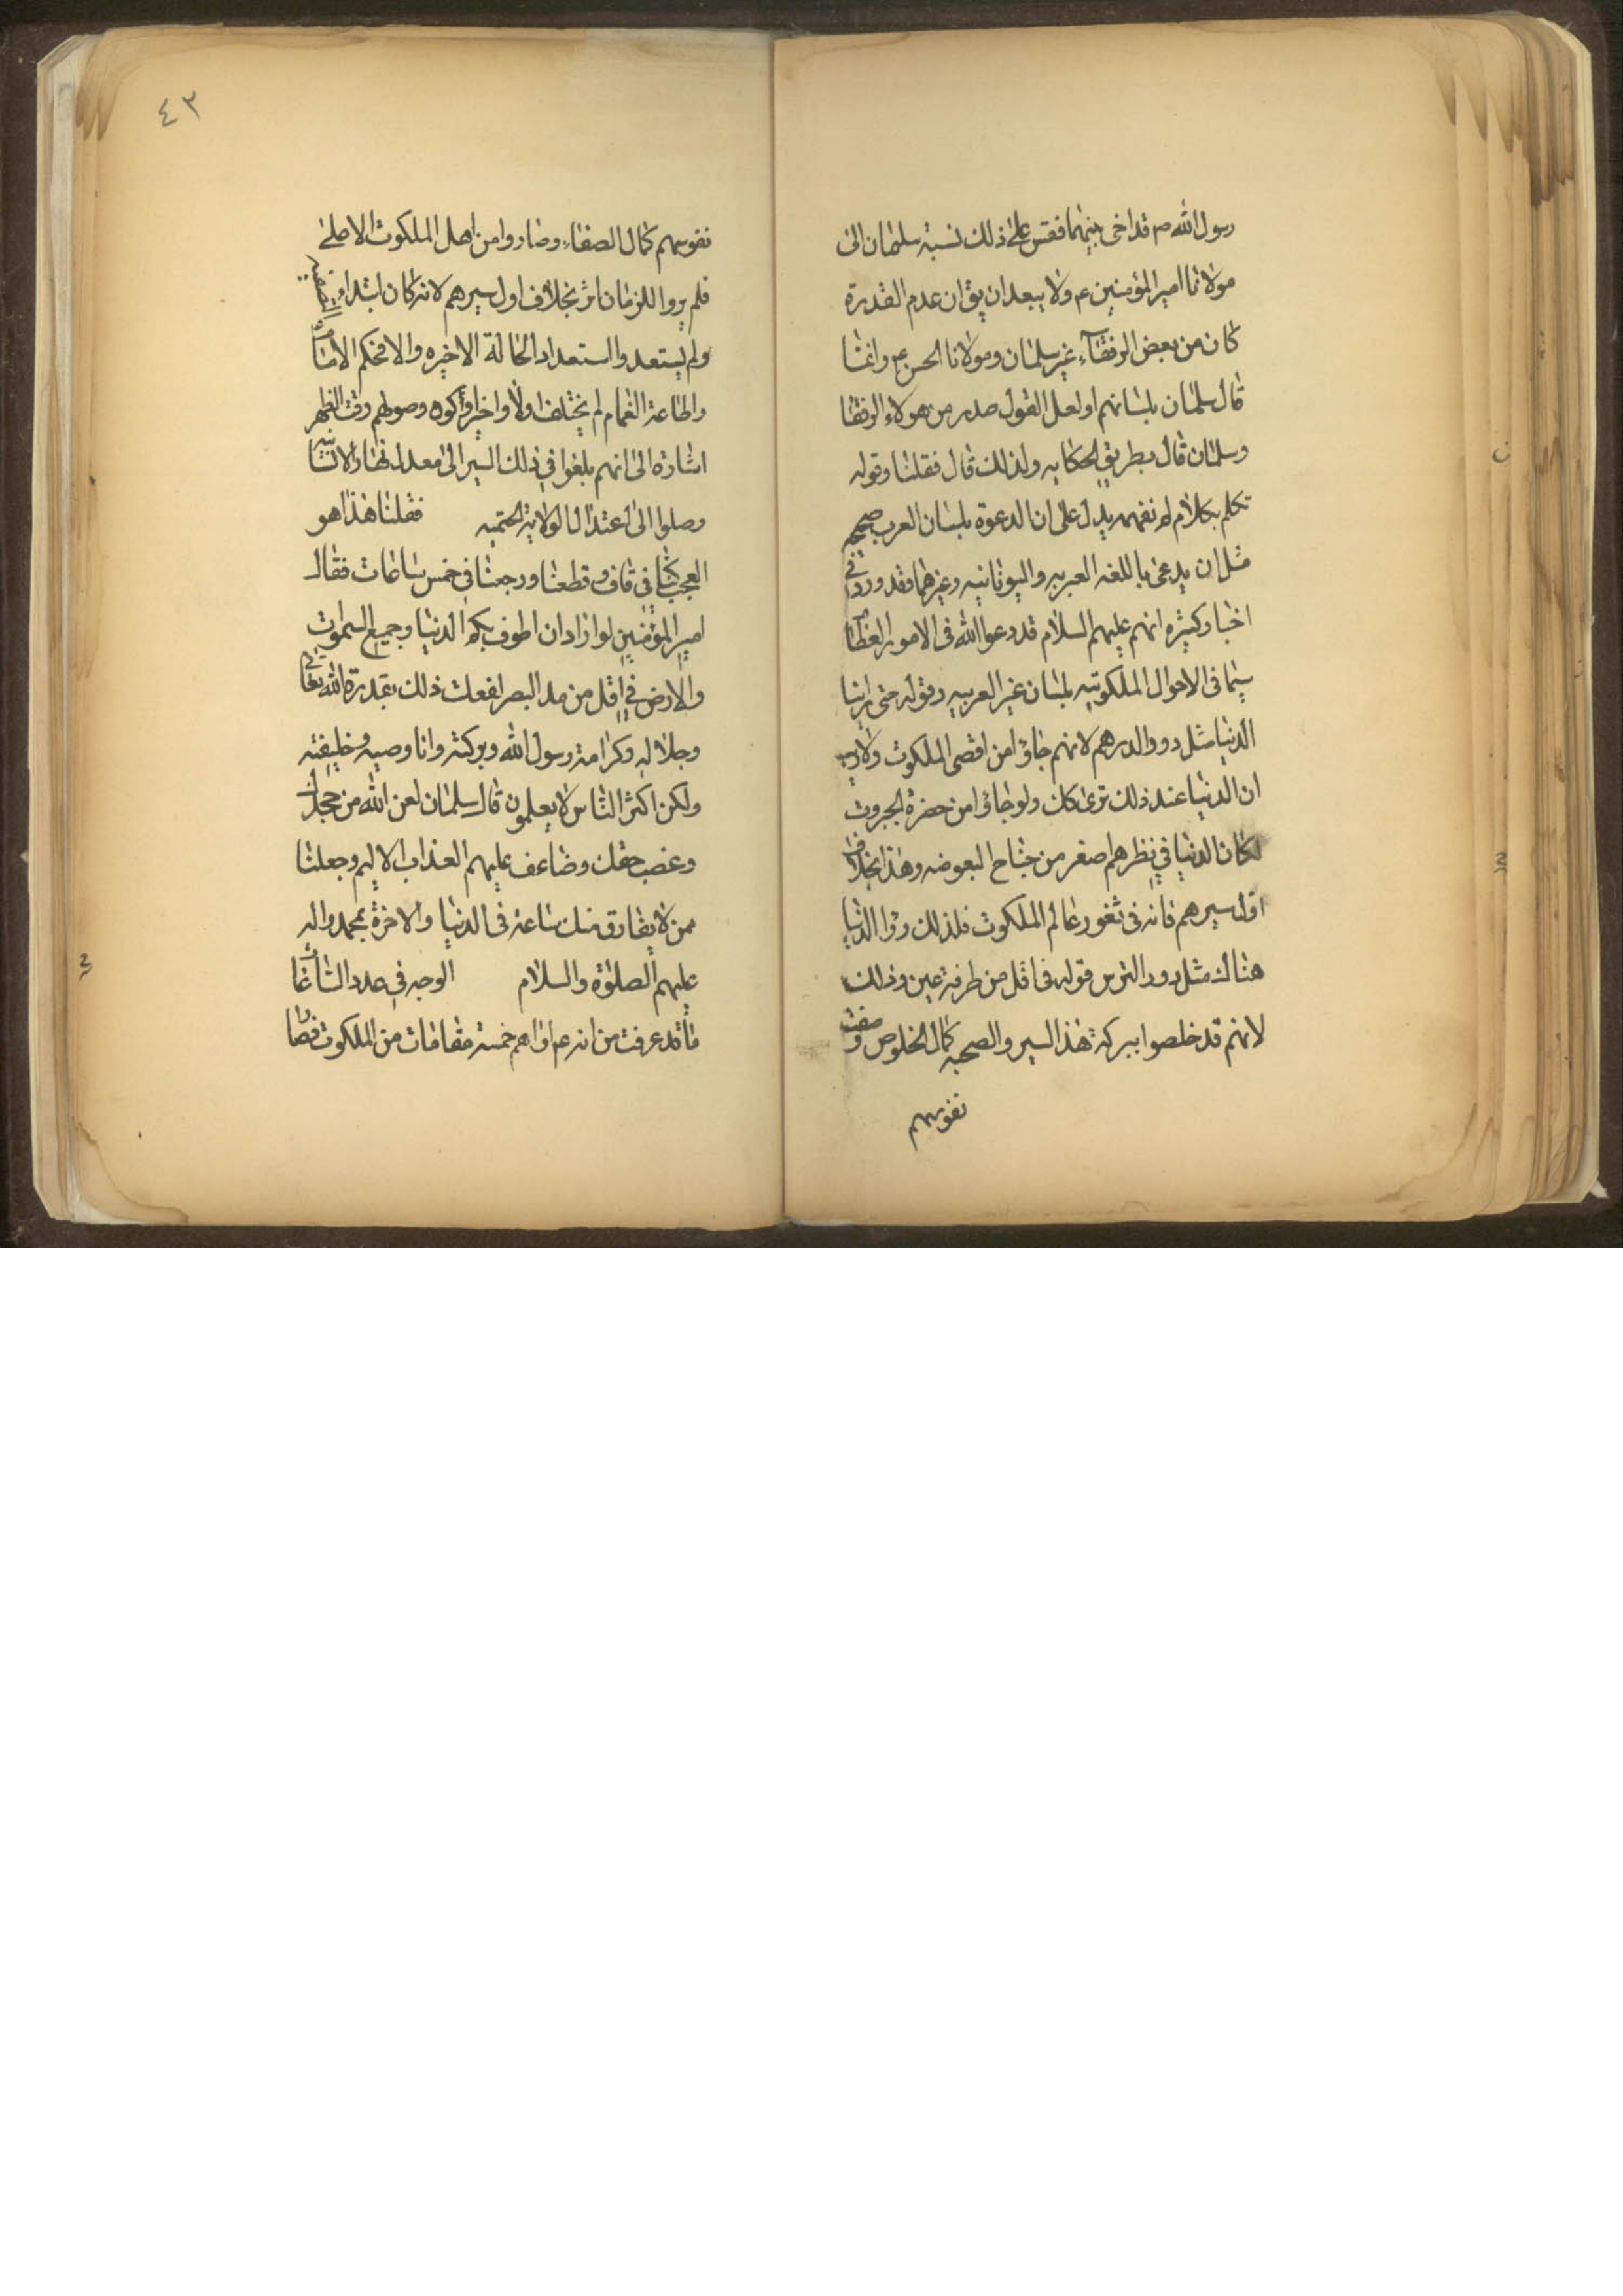 رسول الله ص قد اخى بينهما فقس على ذلك نسبة سلمان الى
مولانا امير المؤمنين ع ولا يبعد ان يق ان عدم القدرة
كان من بعض الرفقآء غير سلمان ومولانا الحسن ع وانما
قال سلمان بلسانهم او لعل القول صدر من هولاء الرفقا
وسلمان قال بطريق الحكايه ولذلك قال فقلنا وقوله
تكلم بكلام لم نفهمه يدل على ان الدعوة بلسان العرب صحيحه
مثل ان يدعى باللغه العبريه واليونانيه وغيرهما وقد ورد في
اخبار كثيره انهم عليهم السلام قد دعوا الله فى الامور العظام
سيما فى الاحوال الملكوتيه بلسان غير العربيه وقوله حتى راينا
الدنيا مثل دور الدرهم لانهم جاؤا من اقصى الملكوت ولا ريب
ان الدنيا عند ذلك ترى كك ولو جاؤا من حضرة الجبروت
لكان الدنيا في نظرهم اصغر من جناح البعوضه وهذا بخلاف
اول سيرهم فانه فى ثغور عالم الملكوت فلذلك رؤا الدنيا
هناك مثل دور الترس قوله فى اقل من طرفة عين وذلك
لانهم قد خلصوا ببركة هذا السير والصحبه كمال الخلوص وصفت
نفوسهم
٤٣
نفوسهم كمال الصفاء وصاروا من اهل الملكوت الاصلى
فلم يروا للزمان اثر بخلاف اول سيرهم لانه كان ابتداء
ولم يستعدوا استعداد الحالة الاخيره والا فحكم الامام
واطاعة الغمام لم يختلف اولا واخرا وكون وصولهم وقت الظهر
اشارة الى انهم بلغوا في ذلك السير الى معدل نهار الانسانيه
وصلوا الى اعتدال الولاية الختميه فقلنا هذا هو
العجب كنا في قاف وقطعنا ورجعنا فى خمس ساعات فقال
امير المؤمنين لو اراد ان اطوف بكم الدنيا وجميع السموات
والارض في اقل من مد البصر لفعلت ذلك بقدرة الله تعالى
وجلاله وكرامة رسول الله وبركته وانا وصيه وخليفته
ولكن اكثر الناس لا يعلمون قال سلمان لعن الله من جحدك
وغصب حقك وضاعف عليهم العذاب الاليم وجعلنا
ممن لا يفارق منك ساعة فى الدنيا والاخرة بمحمد واله
عليهم الصلوة والسلام الوجه في عدد الساعات
ما قد عرفت من انه ع اراهم خمسة مقامات من الملكوت فصار